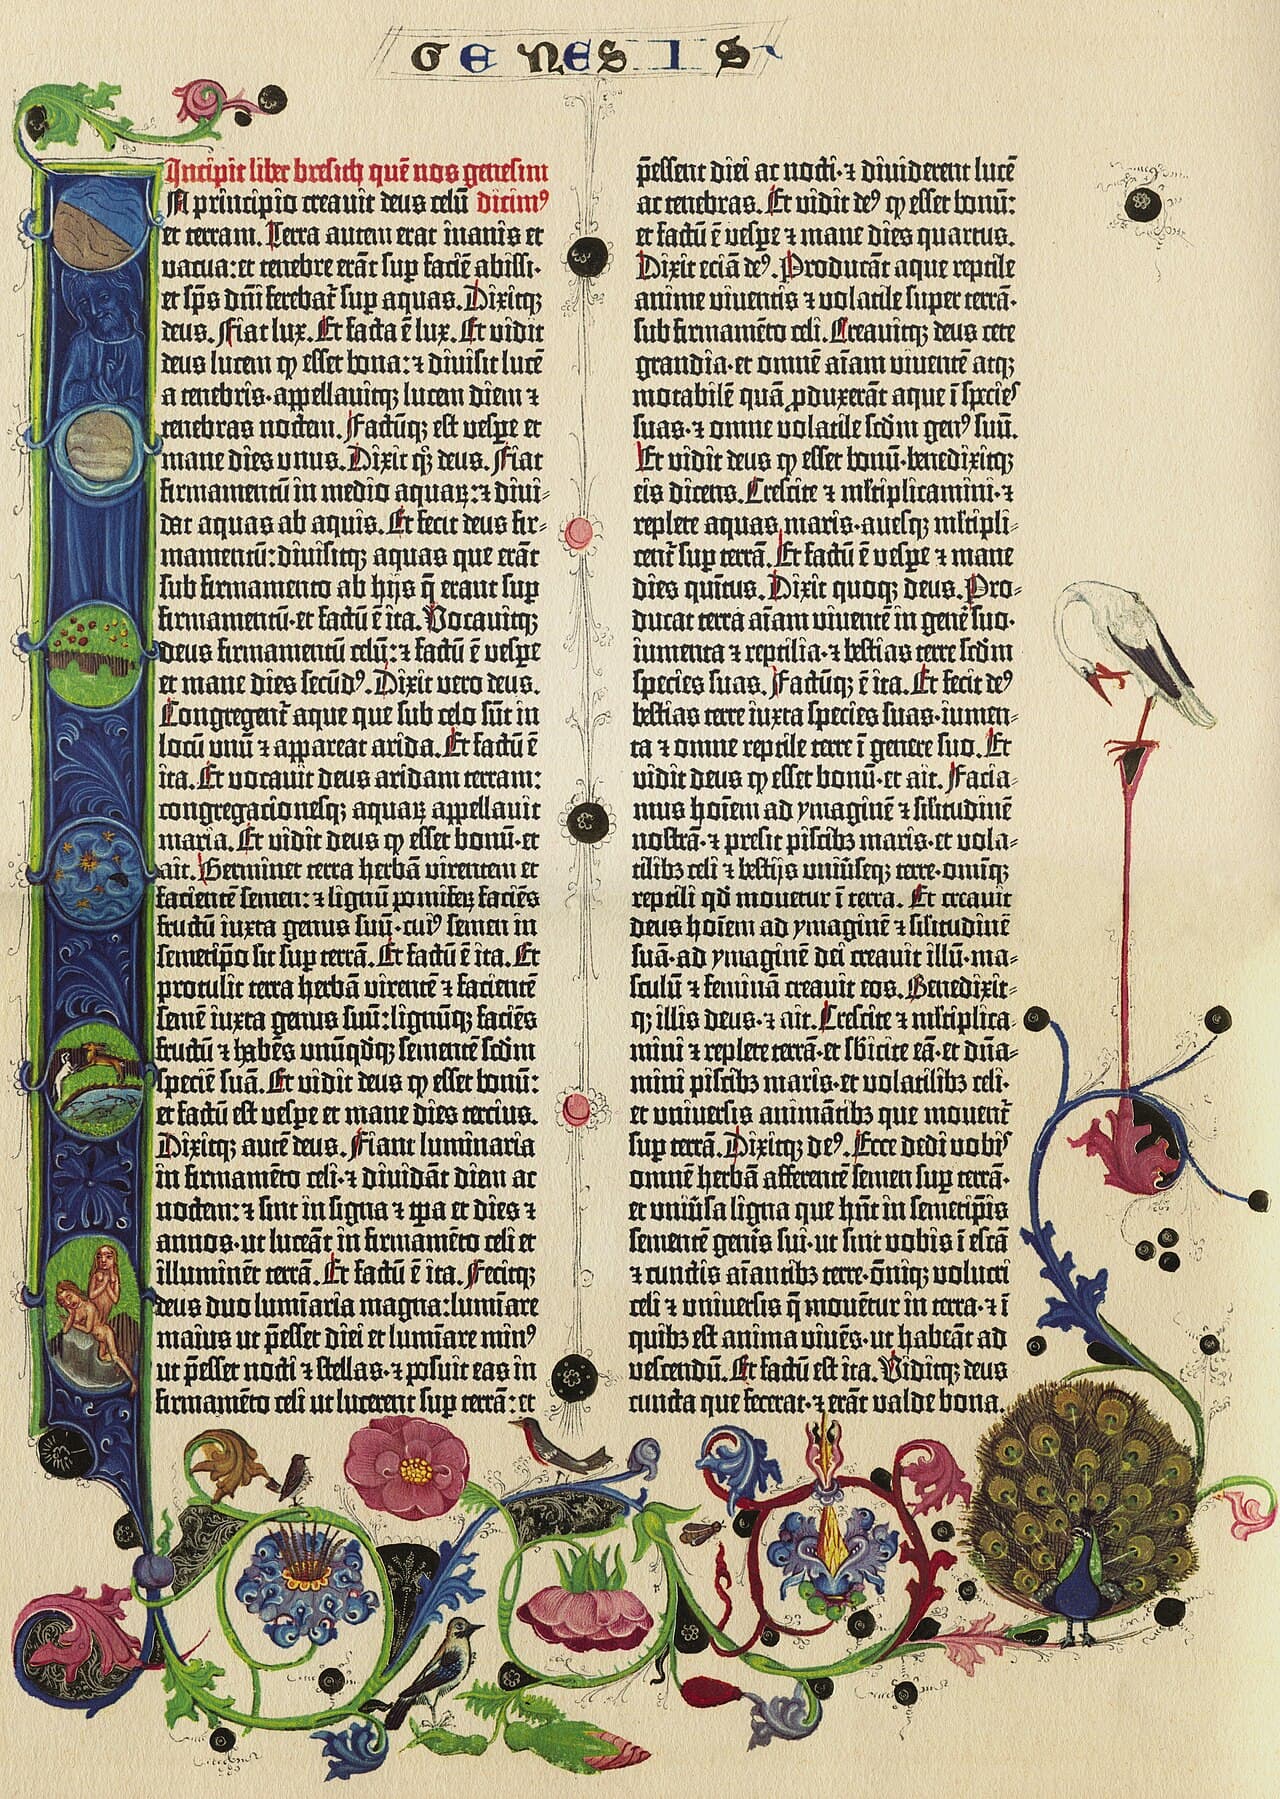 GENESIS
Incipit liber bresich quē nos genesim
In principio creavit deus celū dicim⁹
et terram. Terra autem erat inanis et
vacua: et tenebre erāt sup faciē abissi.
et sp̄s dn̄i ferebat᷑ sup aquas. Dixitqꝫ
deus. Fiat lux. Et facta ē lux. Et vidit
deus lucem ꝙ esset bona: ⁊ divisit lucē
a tenebris. appellavitqꝫ lucem diem ⁊
tenebras noctem. Factūqꝫ est vespe et
mane dies unus. Dixit qꝫ deus. Fiat
firmamentū in medio aquaꝝ: ⁊ divi⸗
dat aquas ab aquis. Et fecit deus fir⸗
mamentū: divisitqꝫ aquas que erāt
sub firmamento ab hijs q̄ erant sup
firmamentū. et factū ē ita. Vocavitqꝫ
deus firmamentū celū: ⁊ factū ē vespe
et mane dies secūd⁹. Dixit vero deus.
Congregent᷑ aque que sub celo sūt in
locū unū ⁊ appareat arida. Et factū ē
ita. Et vocavit deus aridam terram:
congregacionesqꝫ aquaꝝ appellavit
maria. Et vidit deus ꝙ esset bonū. et
ait. Germinet terra herbā virentem et
facientē semen: ⁊ lignū pomiferꝝ faciēs
fructū iuxta genus suū. cui⁹ semen in
semetip̄o sit sup terrā. Et factū ē ita. Et
protulit terra herbā virentē ⁊ facientē
semē iuxta genus suū: lignūqꝫ faciēs
fructū ⁊ habēs unūqdqꝫ sementē scd̄m
speciē suā. Et vidit deus ꝙ esset bonū:
et factū est vespe et mane dies tercius.
Dixitqꝫ autē deus. Fiant luminaria
in firmamēto celi. ⁊ dividāt diem ac
noctem: ⁊ sint in signa ⁊ tp̄a et dies ⁊
annos. ut luceāt in firmamēto celi et
illuminēt terrā. Et factū ē ita. Fecitqꝫ
deus duo lumīaria magna: lumīare
maius ut p̄esset diei et lumīare min⁹
ut p̄esset nocti ⁊ stellas. ⁊ posuit eas in
firmamēto celi ut lucerent sup terrā: et
p̄essent diei ac nocti. ⁊ dividerent lucē
ac tenebras. Et vidit de⁹ ꝙ esset bonū:
et factū ē vespe ⁊ mane dies quartus.
Dixit eciā de⁹. Producāt aque reptile
anime viventis ⁊ volatile super terrā.
sub firmamēto celi. Creavitqꝫ deus cete
grandia. et omnē aīam viventē atqꝫ
motabilē quā ꝓduxerāt aque ī species
suas. ⁊ omne volatile scd̄m gen⁹ suū.
Et vidit deus ꝙ esset bonū. benedixitqꝫ
eis dicens. Crescite ⁊ mltiplicamini. ⁊
replete aquas maris. avesqꝫ mltipli⸗
cent᷑ sup terrā. Et factū ē vespe ⁊ mane
dies quītus. Dixit quoqꝫ deus. Pro⸗
ducat terra aīam viventē in genē suo.
iumenta ⁊ reptilia. ⁊ bestias terre scd̄m
species suas. Factūqꝫ ē ita. Et fecit de⁹
bestias terre iuxta species suas. iumen⸗
ta ⁊ omne reptile terre ī genere suo. Et
vidit deus ꝙ esset bonū. et ait. Facia⸗
mus hoīem ad ymaginē ⁊ silitudinē
nostrā. ⁊ presit piscibꝫ maris. et vola⸗
tilibꝫ celi ⁊ bestijs univ̄seqꝫ terre. omniqꝫ
reptili qd̄ movetur ī terra. Et creavit
deus hoīem ad ymaginē ⁊ silitudinē
suā. ad ymaginē dei creavit illū. ma⸗
sculū ⁊ feminā creavit eos. Benedixit⸗
qꝫ illis deus. ⁊ ait. Crescite ⁊ mltiplica⸗
mini ⁊ replete terrā. et sb̄icite eā. et dn̄a⸗
mini piscibꝫ maris. et volatilibꝫ celi.
et universis animātibꝫ que movent᷑
sup terrā. Dixitqꝫ de⁹. Ecce dedi vobis
omnē herbā afferentē semen sup terrā.
et univ̄sa ligna que hn̄t in semetip̄is
sementē genīs sui. ut sint vobis ī escā
⁊ cunctis aīantibꝫ terre. ōniqꝫ volucri
celi ⁊ universis q̄ moventur in terra. ⁊ ī
quibꝫ est anima vivēs. ut habeāt ad
vescendū. Et factū est ita. Viditqꝫ deus
cuncta que fecerat. ⁊ erāt valde bona.